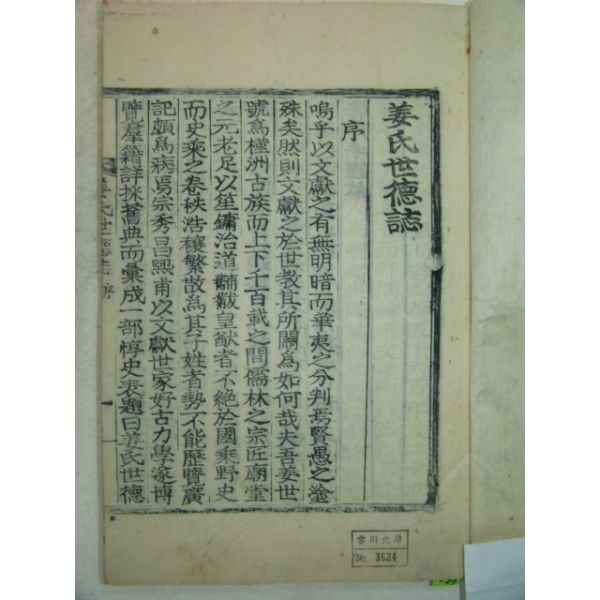 姜氏世德誌
序
嗚乎以文獻之有無明暗而華夷之分判焉賢愚之塗
殊矣然則文獻之於世教其所關爲如何哉夫吾姜世
號爲槿洲古族而上下千百載之間儒林之宗匠廟堂
之元老足以笙鏞治道黼黻皇猷者不絶於國乘野史
而史乘之卷秩浩穰繁散爲其子姓者勢不能歷覽廣
記頗爲病焉宗秀昌熙甫以文獻世家好古力學遂博
覽羣籍詳採舊典而彙成一部惇史表題曰姜氏世德
姜氏世德誌 序
一
雲川文庫
No. 3624